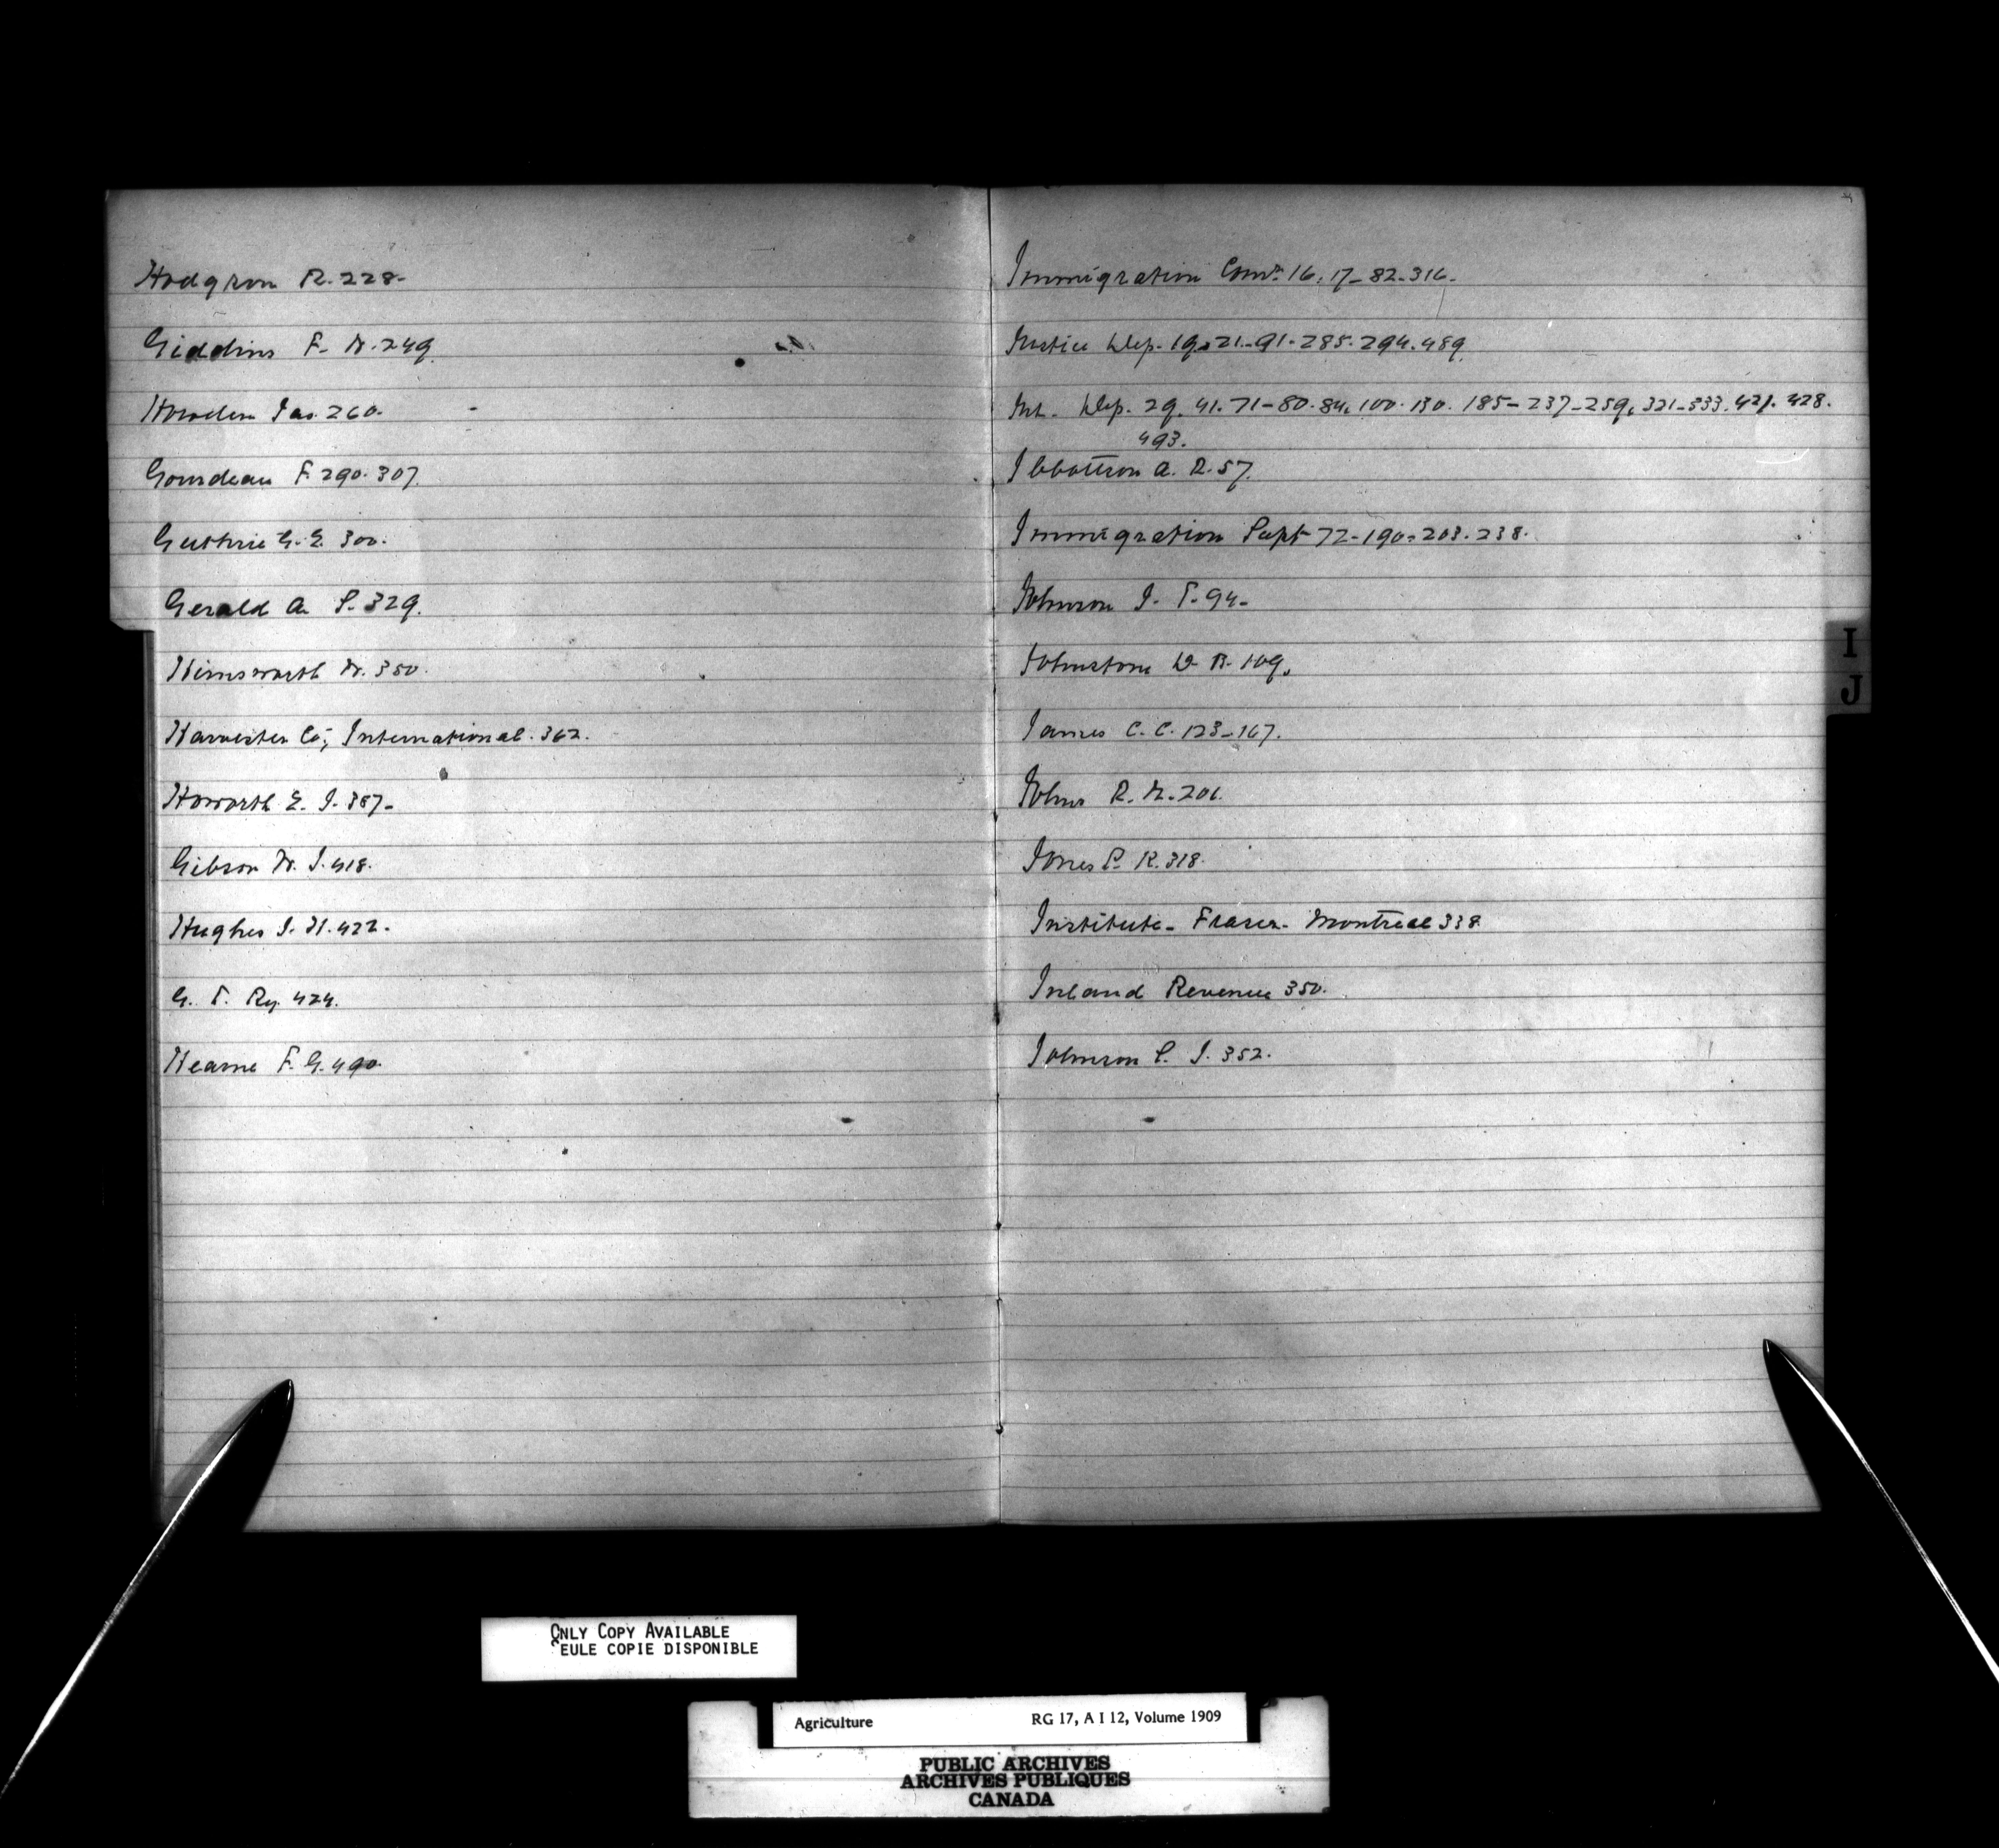 Hodgson R. 228-
Giddins F. W. 249.
Howden Jas. 260.
Gourdeau F. 290. 307.
Guthrie G. E. 300.
Gerald A. P. 329.
Himsworth W. 350.
Harvester Co; International. 362.
Howorth E. J. 387-
Gibson W. J. 418.
Hughes J. H. 422.
G. T. Ry. 424.
Hearne F. G. 490.
Immigration Comr. 16. 17- 82- 316.
Justice Dep. 19. 21- 91- 285. 294. 489.
Int. Dep. 29. 41. 71- 80. 84. 100. 130. 185- 237- 259. 321- 333. 421. 428.
493.
Ibbottson A. R. 57.
Immigration Supt 72- 190- 203. 238.
Johnson J. T. 94-
Johnstone D. B. 109.
James C. C. 123- 167.
Johns R. W. 201.
Jones P. R. 318.
Institute- Fraser- Montreal 338.
Inland Revenue 350.
Johnson P. J. 352.
I
J
ONLY COPY AVAILABLE
SEULE COPIE DISPONIBLE
Agriculture RG 17, A I 12, Volume 1909
PUBLIC ARCHIVES
ARCHIVES PUBLIQUES
CANADA